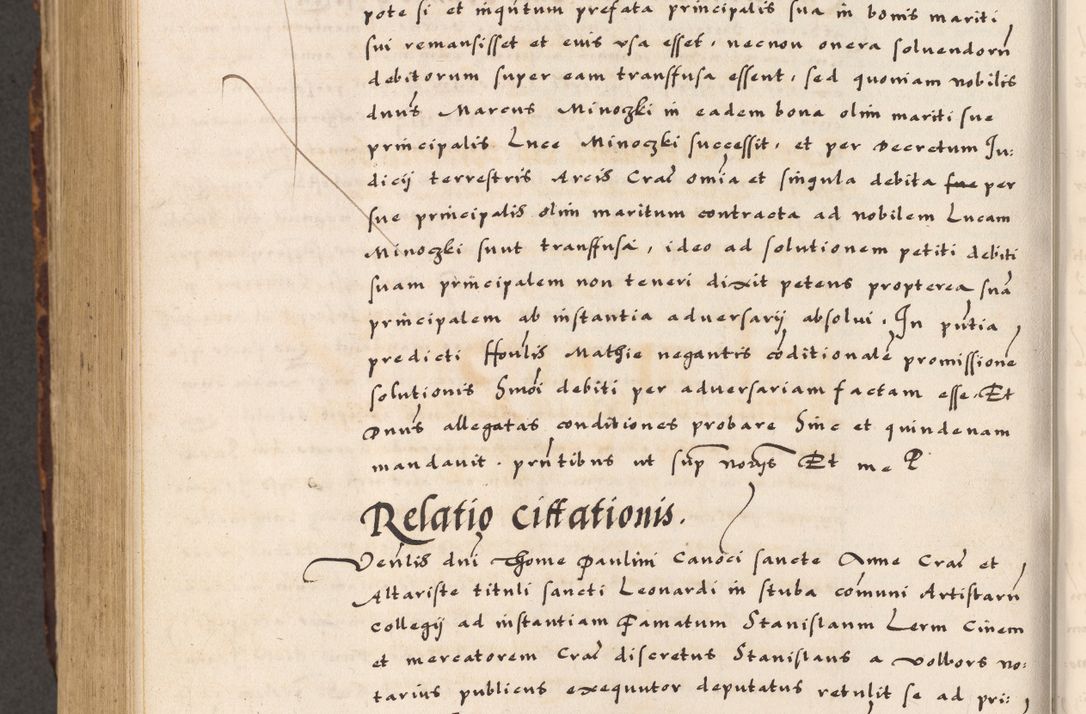 pote si et inqntum prefata principalis sua in bonis mariti
sui remansisset et euis vsa esset, necnon onera soluendorũ
debitorum super eam transfusa essent, sed quoniam nobilis
dnus Marcus Minoczki in eadem bona olim mariti sue
principalis Luce Minoczki successit, et per Decretum Ju:
dicij terrestris Arcis Cra͠c omĩa et singula debita per
sue principalis olim maritum contracta ad nobilem Lucam
Minoczki sunt transfusa, ideo ad solutionem petiti debiti
suam principalem non teneri dixit petens propterea suã
principalem ab instantia adversarij absolui. In pñtia
predicti Honlis Mathie negantis cõditionalẽ promissionẽ
solutionis Smõi debiti per adversariam factam esse. Et
Dnus allegatas conditiones probare Sine et quindenam
mandauit. prñtibus ut sup notõis Et me P
Relatio cittationis.
Venlis dni Thome Paulini Canõci sancte Anne Cra͠c et
Altariste tituli sancti Leonardi in stuba cõmuni Artistarũ
collegij ad instantiam Famatum Stanislaum Lerm Ciuem
et mercatorem Cra͠c discretus Stanislaus a Volbors no:
tarius publicus exequutor deputatus retulit se ad pri: